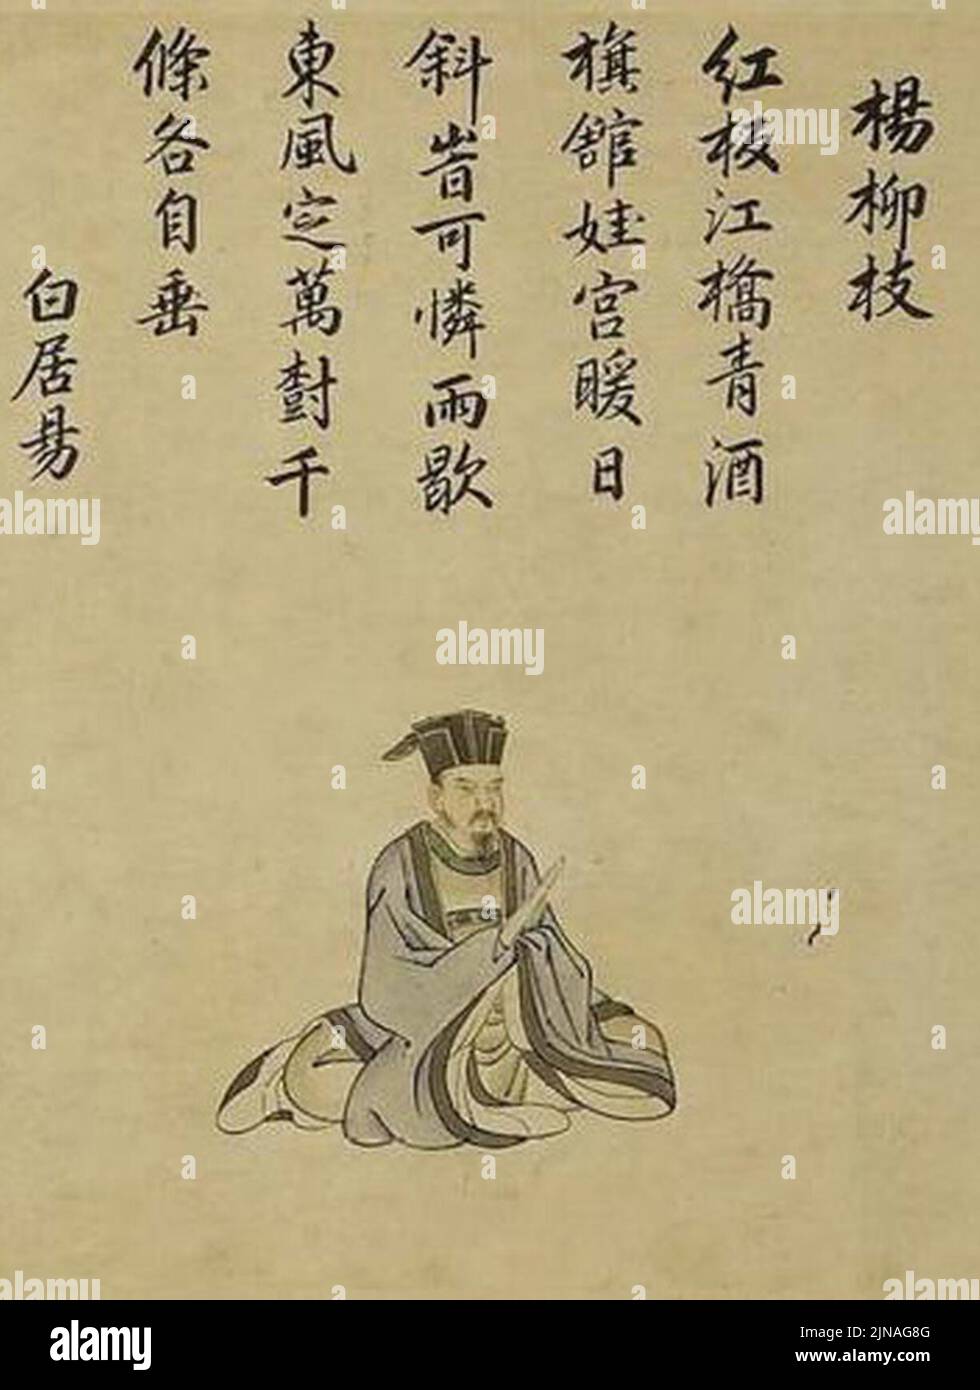 楊柳枝
紅板江橋青酒
旗舘娃宮暖日
斜旹可憐雨歇
東風定萬尌千
條各自垂
白居易
alamy
alamy
alamy
alamy
alamy
Image ID: 2JNAG8G
www.alamy.com